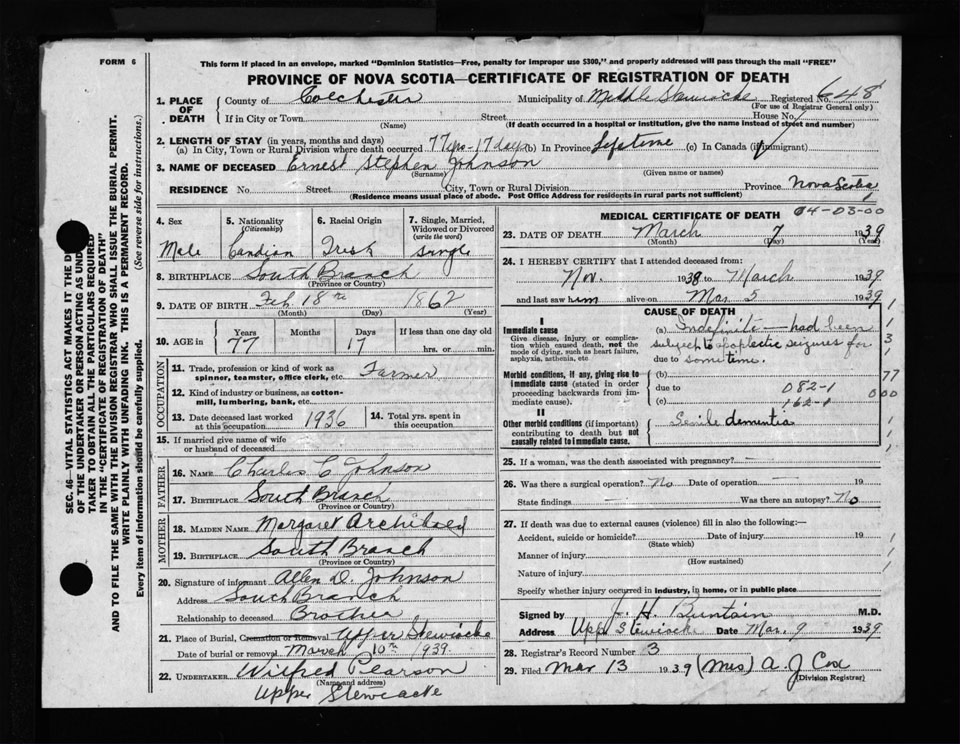 FORM 6
This form if placed in an envelope, marked "Dominion Statistics—Free, penalty for improper use $300," and properly addressed will pass through the mail "FREE"
PROVINCE OF NOVA SCOTIA—CERTIFICATE OF REGISTRATION OF DEATH
SEC. 46—VITAL STATISTICS ACT MAKES IT THE DU
OF THE UNDERTAKER OR PERSON ACTING AS UNDE
TAKER TO OBTAIN ALL THE PARTICULARS REQUIRED
IN THE "CERTIFICATE OF REGISTRATION OF DEATH"
AND TO FILE THE SAME WITH THE DIVISION REGISTRAR WHO SHALL ISSUE THE BURIAL PERMIT.
WRITE PLAINLY WITH UNFADING INK. THIS IS A PERMANENT RECORD.
Every item of information should be carefully supplied. (See reverse side for instructions.)
1. PLACE OF DEATH County of Colchester Municipality of Middle Stewiacke Registered No. 648
(For use of Registrar General only)
If in City or Town Street House No.
(Name) (If death occurred in a hospital or institution, give the name instead of street and number)
2. LENGTH OF STAY (in years, months and days)
(a) In City, Town or Rural Division where death occurred 77 yrs - 17 days (b) In Province Lifetime (c) In Canada (if immigrant)
3. NAME OF DECEASED Ernest Stephen Johnson
(Surname) (Given name or names)
RESIDENCE No. Street City, Town or Rural Division Province Nova Scotia
(Residence means usual place of abode. Post Office Address for residents in rural parts not sufficient)
4. Sex Male
5. Nationality (Citizenship) Candian
6. Racial Origin Irish
7. Single, Married, Widowed or Divorced (write the word) Single
8. BIRTHPLACE South Branch
(Province or Country)
9. DATE OF BIRTH Feb 18th 1862
(Month) (Day) (Year)
10. AGE in Years 77 Months Days 17 If less than one day old hrs. or min.
OCCUPATION
11. Trade, profession or kind of work as spinner, teamster, office clerk, etc. Farmer
12. Kind of industry or business, as cotton-mill, lumbering, bank, etc.
13. Date deceased last worked at this occupation 1936
14. Total yrs. spent in this occupation
15. If married give name of wife or husband of deceased
FATHER
16. NAME Charles C Johnson
17. BIRTHPLACE South Branch
(Province or Country)
MOTHER
18. MAIDEN NAME Margaret Archibald
19. BIRTHPLACE South Branch
(Province or Country)
20. Signature of informant Allen D. Johnson
Address South Branch
Relationship to deceased Brother
21. Place of Burial, Cremation or Removal Upper Stewiacke
Date of burial or removal March 10th 1939.
22. UNDERTAKER Wilfred Pearson
(Name and address)
Upper Stewiacke
MEDICAL CERTIFICATE OF DEATH 04-03-00
23. DATE OF DEATH March 7 1939
(Month) (Day) (Year)
24. I HEREBY CERTIFY that I attended deceased from:
Nov. 1938 to March 1939
and last saw him alive on Mar 5 1939
CAUSE OF DEATH
I
Immediate cause
Give disease, injury or complication which caused death, not the mode of dying, such as heart failure, asphyxia, asthenia, etc
(a) Indefinite — had been
subject to apoplectic seizures for
due to some time.
Morbid conditions, if any, giving rise to immediate cause (stated in order proceeding backwards from immediate cause).
(b)
due to 082-1
(c) 162-1
77
000
II
Other morbid conditions (if important) contributing to death but not causally related to immediate cause.
Senile dementia
25. If a woman, was the death associated with pregnancy? —
26. Was there a surgical operation? No Date of operation — 19
State findings — Was there an autopsy? No
27. If death was due to external causes (violence) fill in also the following:—
Accident, suicide or homicide? Date of injury 19
(State which)
Manner of injury
(How sustained)
Nature of injury
Specify whether injury occurred in industry, in home, or in public place
Signed by J. H. Buntain M.D.
Address Upp. Stewiacke Date Mar. 9 1939
28. Registrar's Record Number 3
29. Filed Mar 13 1939 (Mrs) A. J Cox
(Division Registrar)